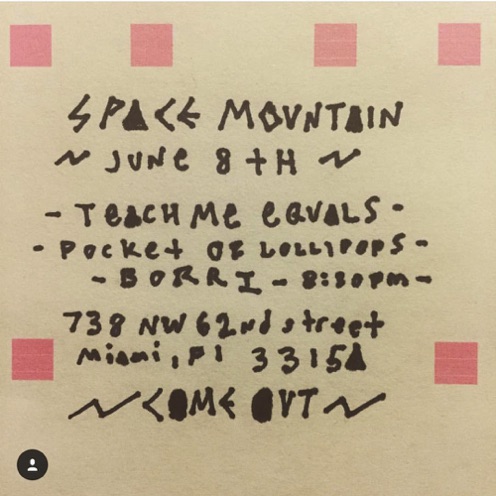 SPACE MOUNTAIN
~ JUNe 8tH ~
- TeACH Me eQUALS -
- Pocket OF LOLLIPOPS -
- BORRI - 8:30pm -
738 NW 62nd street
Miami, Fl 33150
~ COME OUT ~